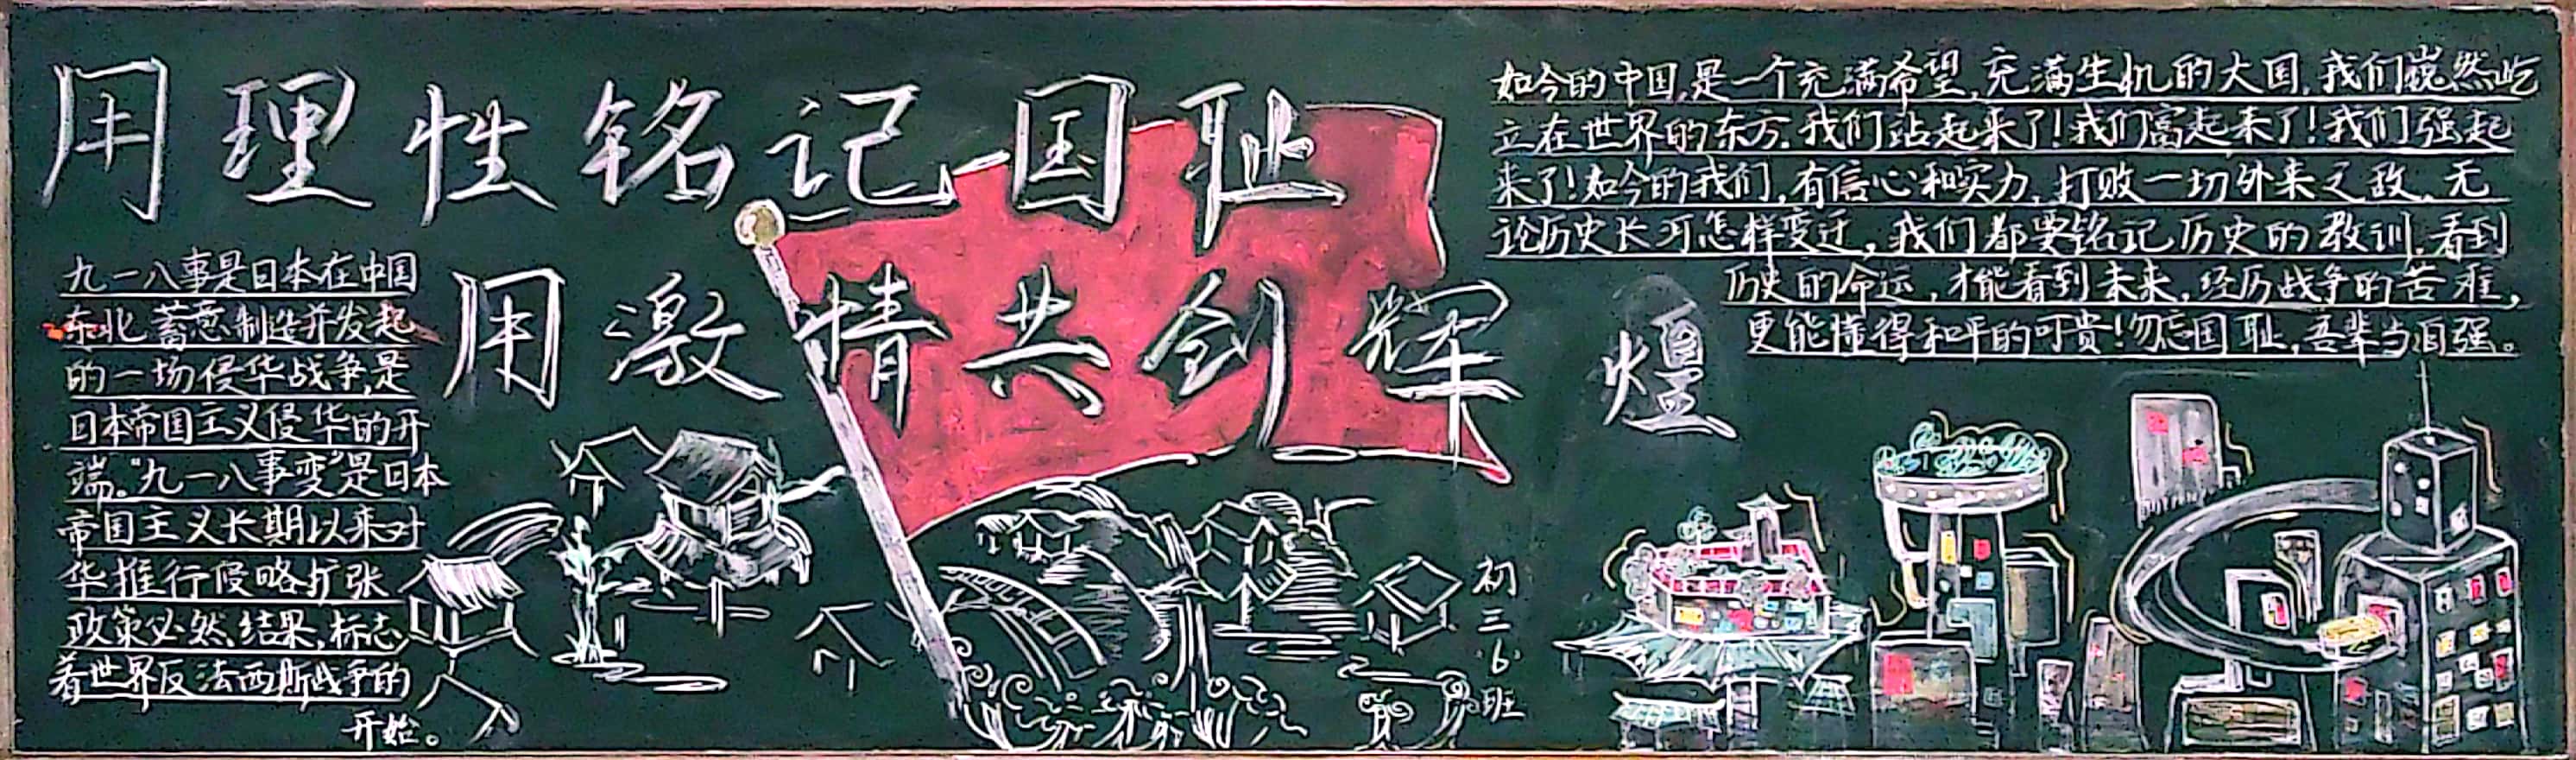 用理性铭记国耻
用激情共创辉煌
九一八事是日本在中国
东北蓄意制造并发起
的一场侵华战争,是
日本帝国主义侵华的开
端。“九一八事变”是日本
帝国主义长期以来对
华推行侵略扩张
政策必然结果,标志
着世界反法西斯战争的
开始。
如今的中国,是一个充满希望,充满生机的大国,我们巍然屹
立在世界的东方.我们站起来了!我们富起来了!我们强起
来了!如今的我们,有信心和实力,打败一切外来之敌.无
论历史长河怎样变迁,我们都要铭记历史的教训.看到
历史的命运,才能看到未来,经历战争的苦难,
更能懂得和平的可贵!勿忘国耻,吾辈当自强。
初三·6·班